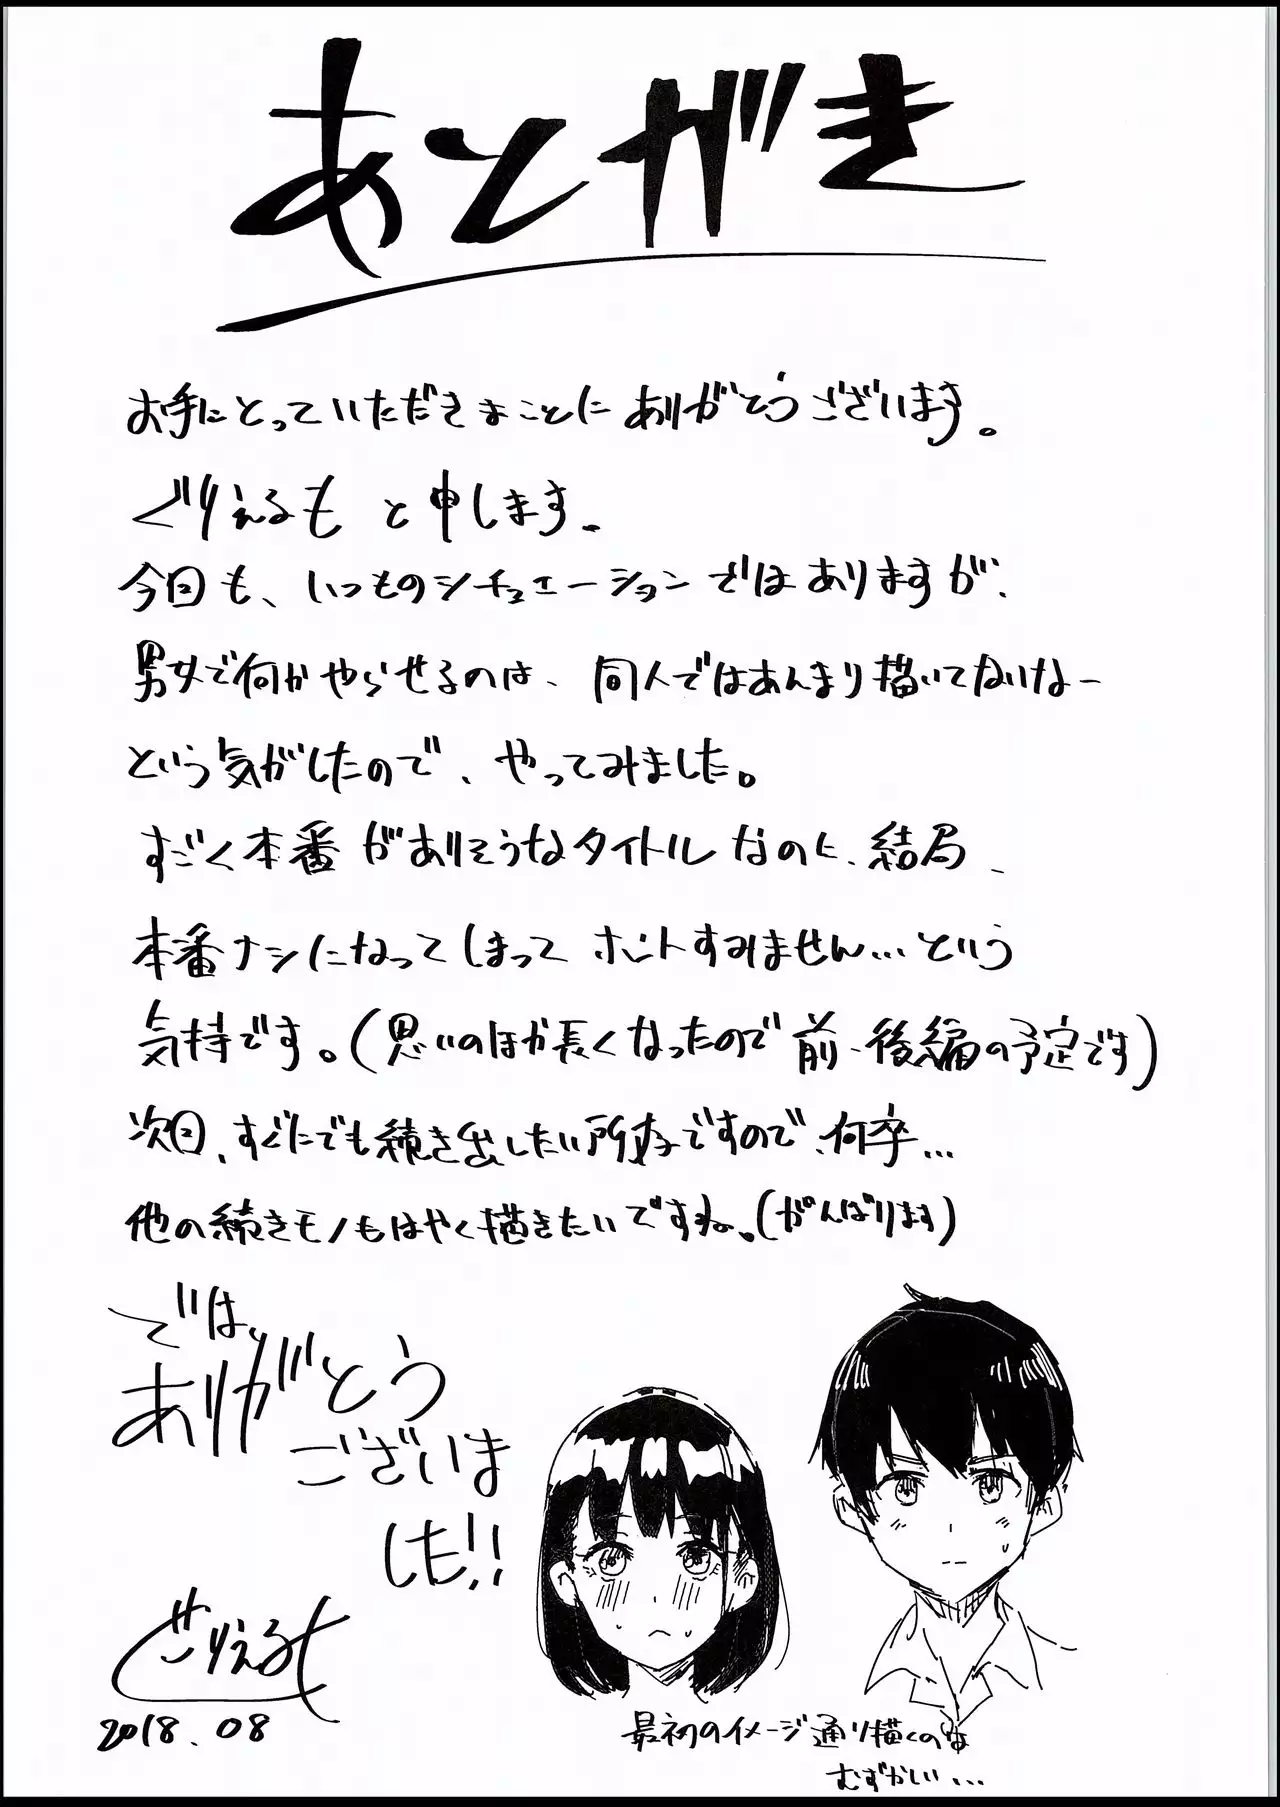 あとがき
お手にとっていただきまことにありがとうございます。
ぐりえるもと申します。
今回も、いつものシチュエーションではありますが、
男女で何かやらせるのは、同人ではあんまり描いてないなー
という気がしたので、やってみました。
すごく本番がありそうなタイトルなのに、結局、
本番ナシになってしまってホントすみません…という
気持です。(思いのほか長くなったので前、後編の予定です)
次回、すぐにでも続き出したい所存ですので、何卒…
他の続きモノもはやく描きたいですね。(がんばります)
では、
ありがとう
ございま
した!!
ぐりえるも
2018.08
最初のイメージ通り描くのは
むずかしい…